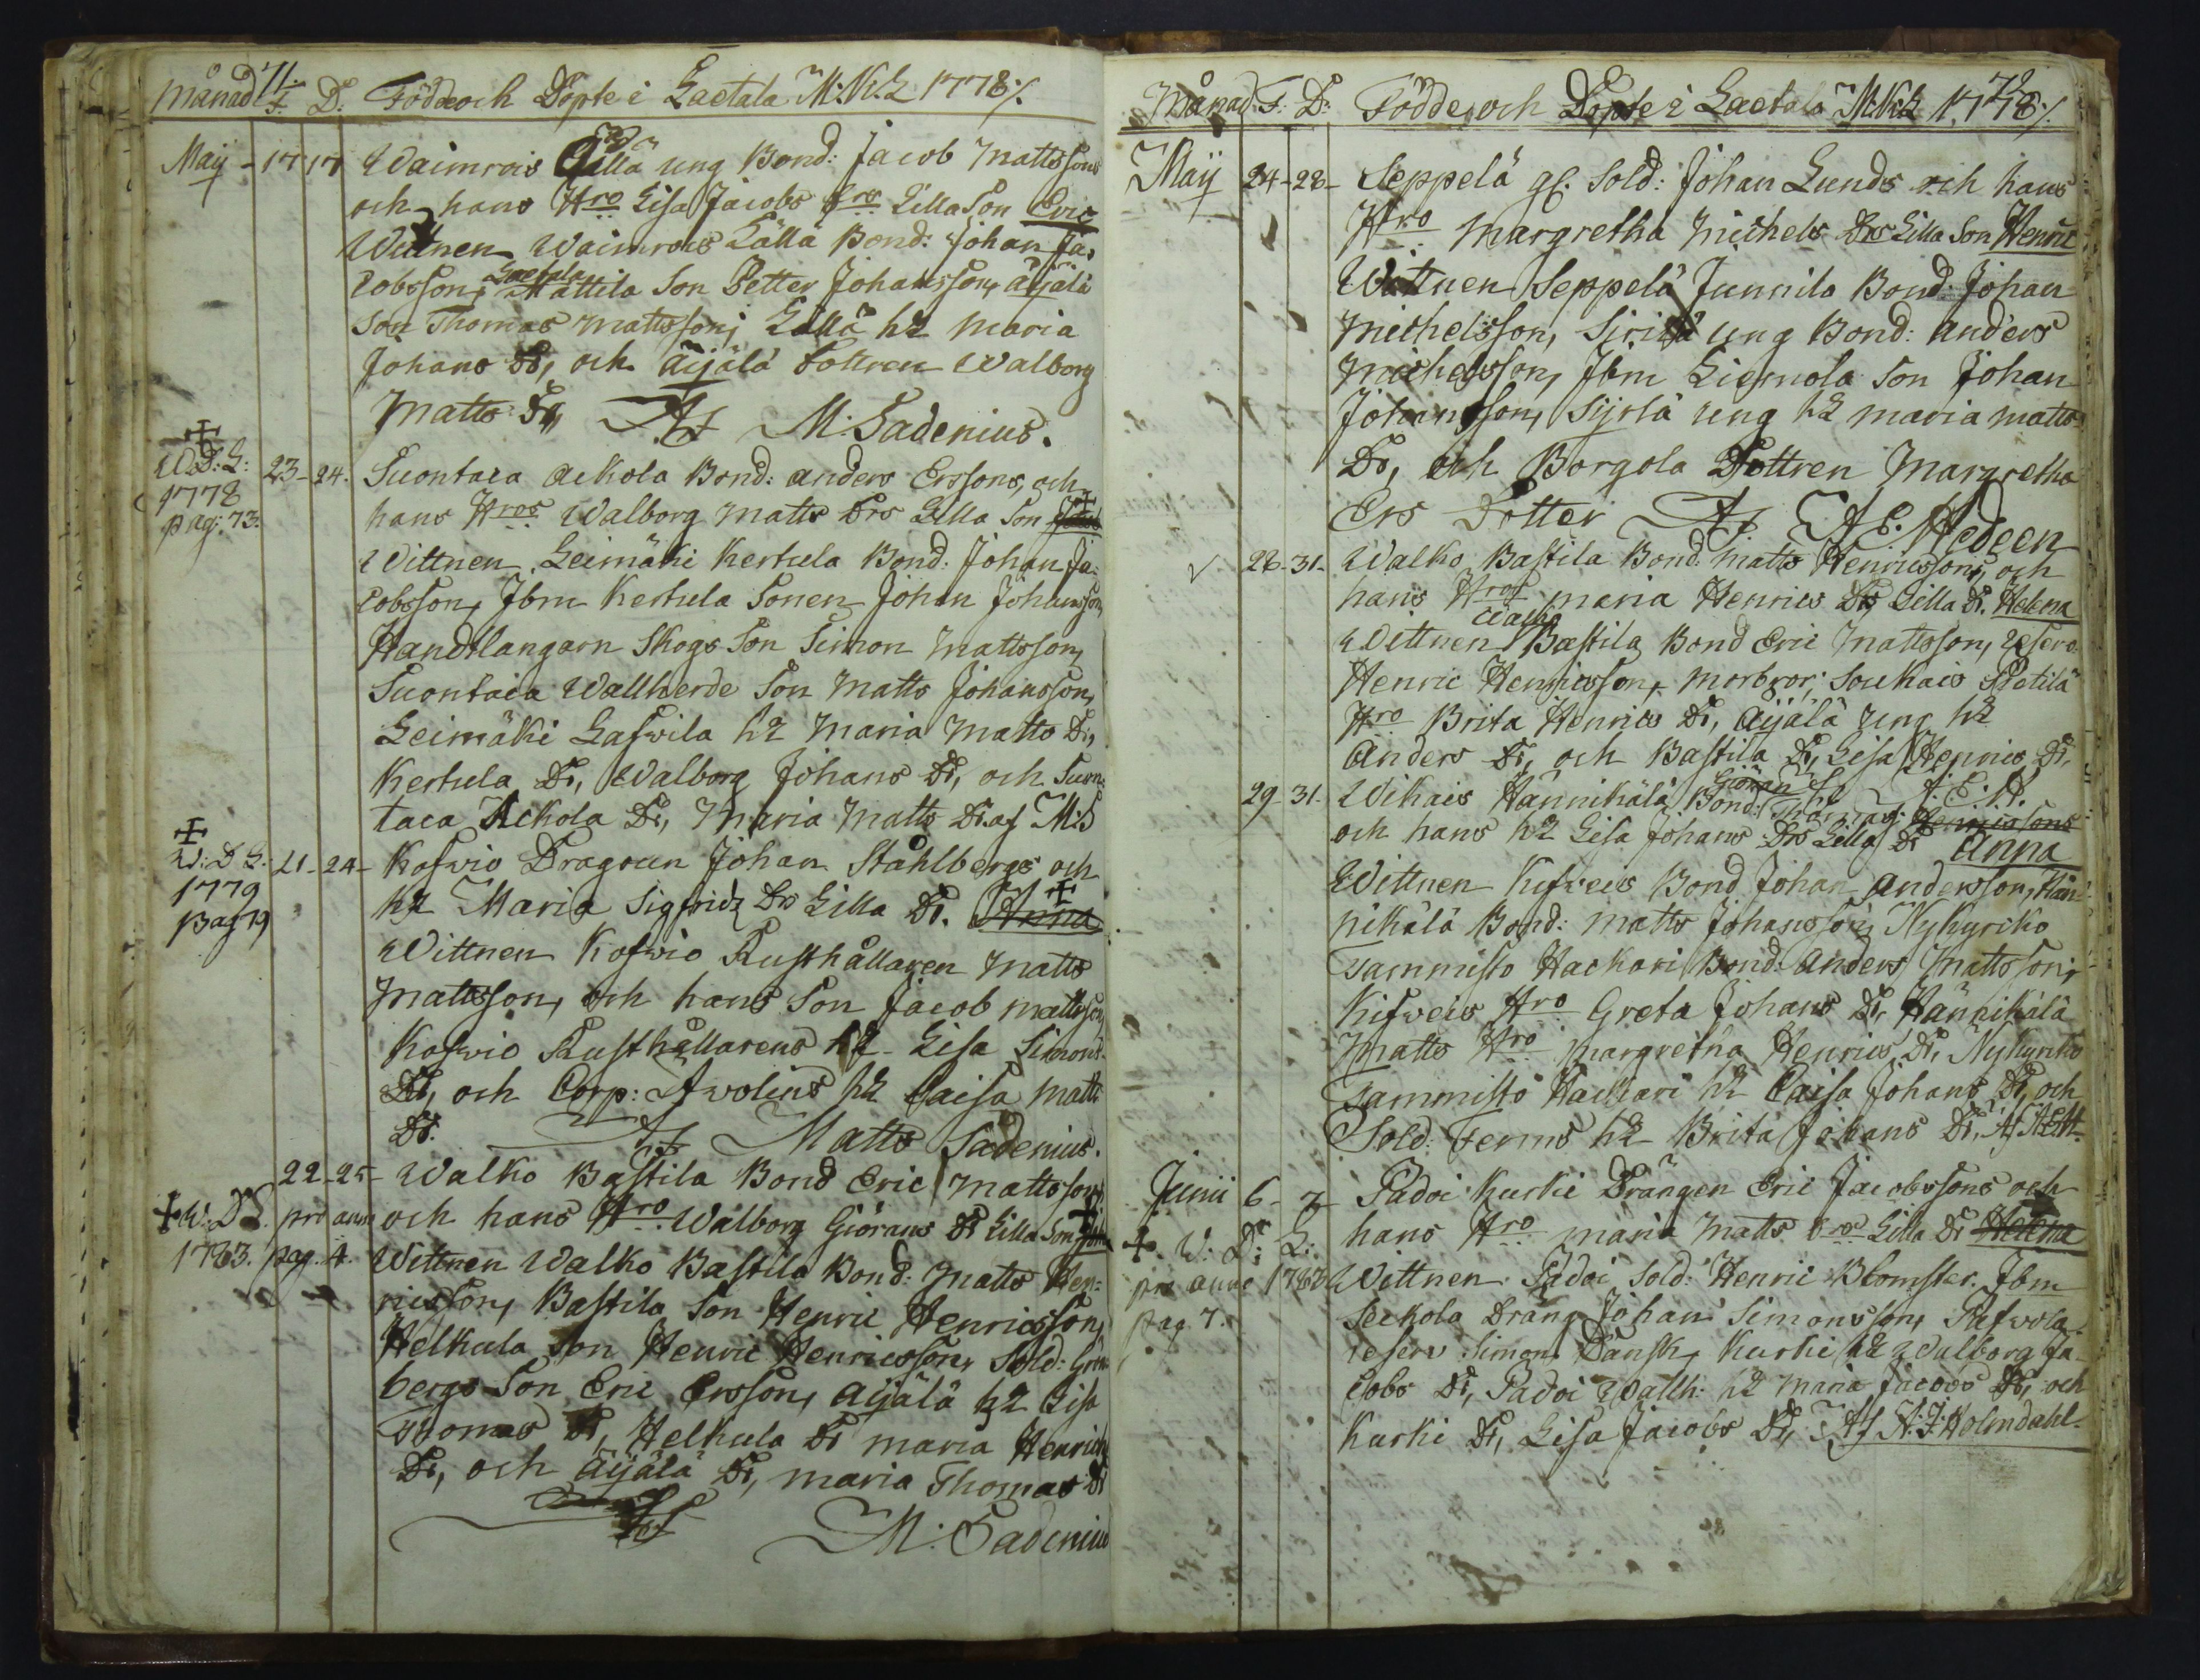 71.
Månad F. D: Födde och Döpte i Laetala M:K:L 1778 ./.
Maij - 17 17 Waimrois Lällä ung Bond: Jacob Mattssons
och hans Hro Lisa Jacobs Drs Lilla Son Eric
Wittnen Waimrois Lällä Bond: Johan Ja-
cobsson, Laetala Mattila Son Petter Johansson, äijälä
Son Thomas Mattsson; Lällä h2 Maria
Johans Dr, och äijälä dottren Walborg
Matts Dr, Af M: Sadenius.
W:D:L: 1778 pag: 73.
23 - 24. Suontaca Ackola Bond: anders Erssons, och
hans Hros Walborg Matts Drs Lilla Son
Wittnen Leimäki Kertula Bond: Johan Ja-
cobsson, Ibm Kertula Sonen Johan Johansson,
Handtlangarn Skogs Son Simon Mattsson,
Suontaca Wallherde Son Matts Johansson,
Leimäki Laswila h2 Maria Matts Dr,
Kertula Dr, Walborg Johans Dr, och Suon-
taca Ackola Dr, Maria Matts Dr. af M:S
W:D:L: 1779 Pag 19
21 - 24 - Koswio Dragoun Johan Ståhlbergs och
h2 Maria Sigfrids Drs Lilla Dr. Anna
Wittnen Koswio Rusthållaren Matts
Mattsson, och hans Son Jacob Mattsson,
Koswio Rusthållarens h2 Lisa Simons
Dr, och Corp: Awolins h2 Caisa Matts
Dr. Af Matts Sadenius.
22 - 25 - Walko Bastila Bond Eric Mattssons
W:D:L. pro anno 1783. pag. 4.
och hans Hro Walborg Giörans Dr Lilla Son
Wittnen Walko Bastila Bond: Matts Hen-
ricsson, Bastila Son Henric Henricsson,
Helkula Son Henric Henricsson, Sold: Grön-
bergs Son Eric Ersson, äijälä h2 Lisa
Thomas Dr, Helkula Dr Maria Henrics
Dr, och äijälä Dr, Maria Thomas Dr
Af M: Sadenius
72
Månad. F. D: Födde och Döpte i Laetala M:K:L 1778 ./.
Maij 24 - 28 - Seppelä gl. Sold: Johan Lunds och hans
Hro Margretha Michels Drs Lilla Son Henric
Wittnen Seppelä Junnila Bond: Johan
Michelsson, ung Bond: anders
Michelsson, Ibm Liemola Son Johan
Johansson, ung h2 Maria Matts
Dr, och Borgola Dottren Margretha
Ers Dotter Af A E: Hedeen
28 - 31 - Walko Bastila Bond: Matts Henricssons, och
hans Hros Maria Henrics Drs Lilla Dr. Helena
Wittnen Walko Bastila Bond Eric Mattsson, Reserv.
Henric Henricsson, Morbror; Soukais Pietilä
Hro Brita Henrics Dr, äijälä ung h2
Anders Dr, och Bastila Dr, Lisa Henrics Dr.
Af A:E:H.
29 - 31 - Wihais Hännikälä Bond: Giöran Thomas Henricssons
och hans h2 Lisa Johans Drs Lilla Dr Anna
Wittnen Kisweis Bond Johan Andersson, Hän-
nikälä Bond: Matts Johansson, Nykyrko
Tammisto Hackari Bond: anders Mattsson,
Kisweis Hro Greta Johans Dr, Hännikälä
Matts Hro Margretha Henrics Dr, Nykyrko
Tammisto Hackari h2 Caisa Johans Dr, och
Sold: Ferms h2 Brita Johans Dr, Af AEH.
Junii 6 - 7 Padoi Kurki Drängen Eric Jacobssons och
hans Hro Maria Matts Drs Lilla Dr Helena
W: D: L: pro anno 1783 pag 7.
Wittnen Padoi Sold: Henric Blomster. Ibm
Seekola Dräng Johan Simonsson,
Reserv Simon Dansk, Kurki h2 Walborg Ja-
cobs Dr, Padoi Wallh: h2 Maria Jacobs Dr, och
Kurki Dr, Lisa Jacobs Dr, Af H:J:Holmdahl.